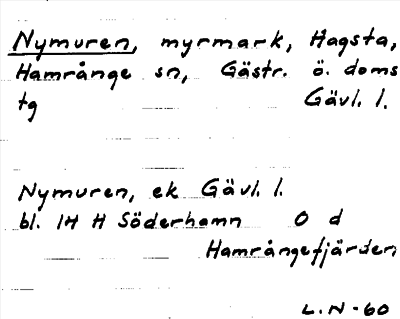 Nymuren, myrmark, Hagsta,
Hamrånge sn, Gästr. ö. doms
tg Gävl. l.
Nymuren, ek Gävl. l.
bl. 14 H Söderhamn O d
Hamrångefjärden
L.N-60